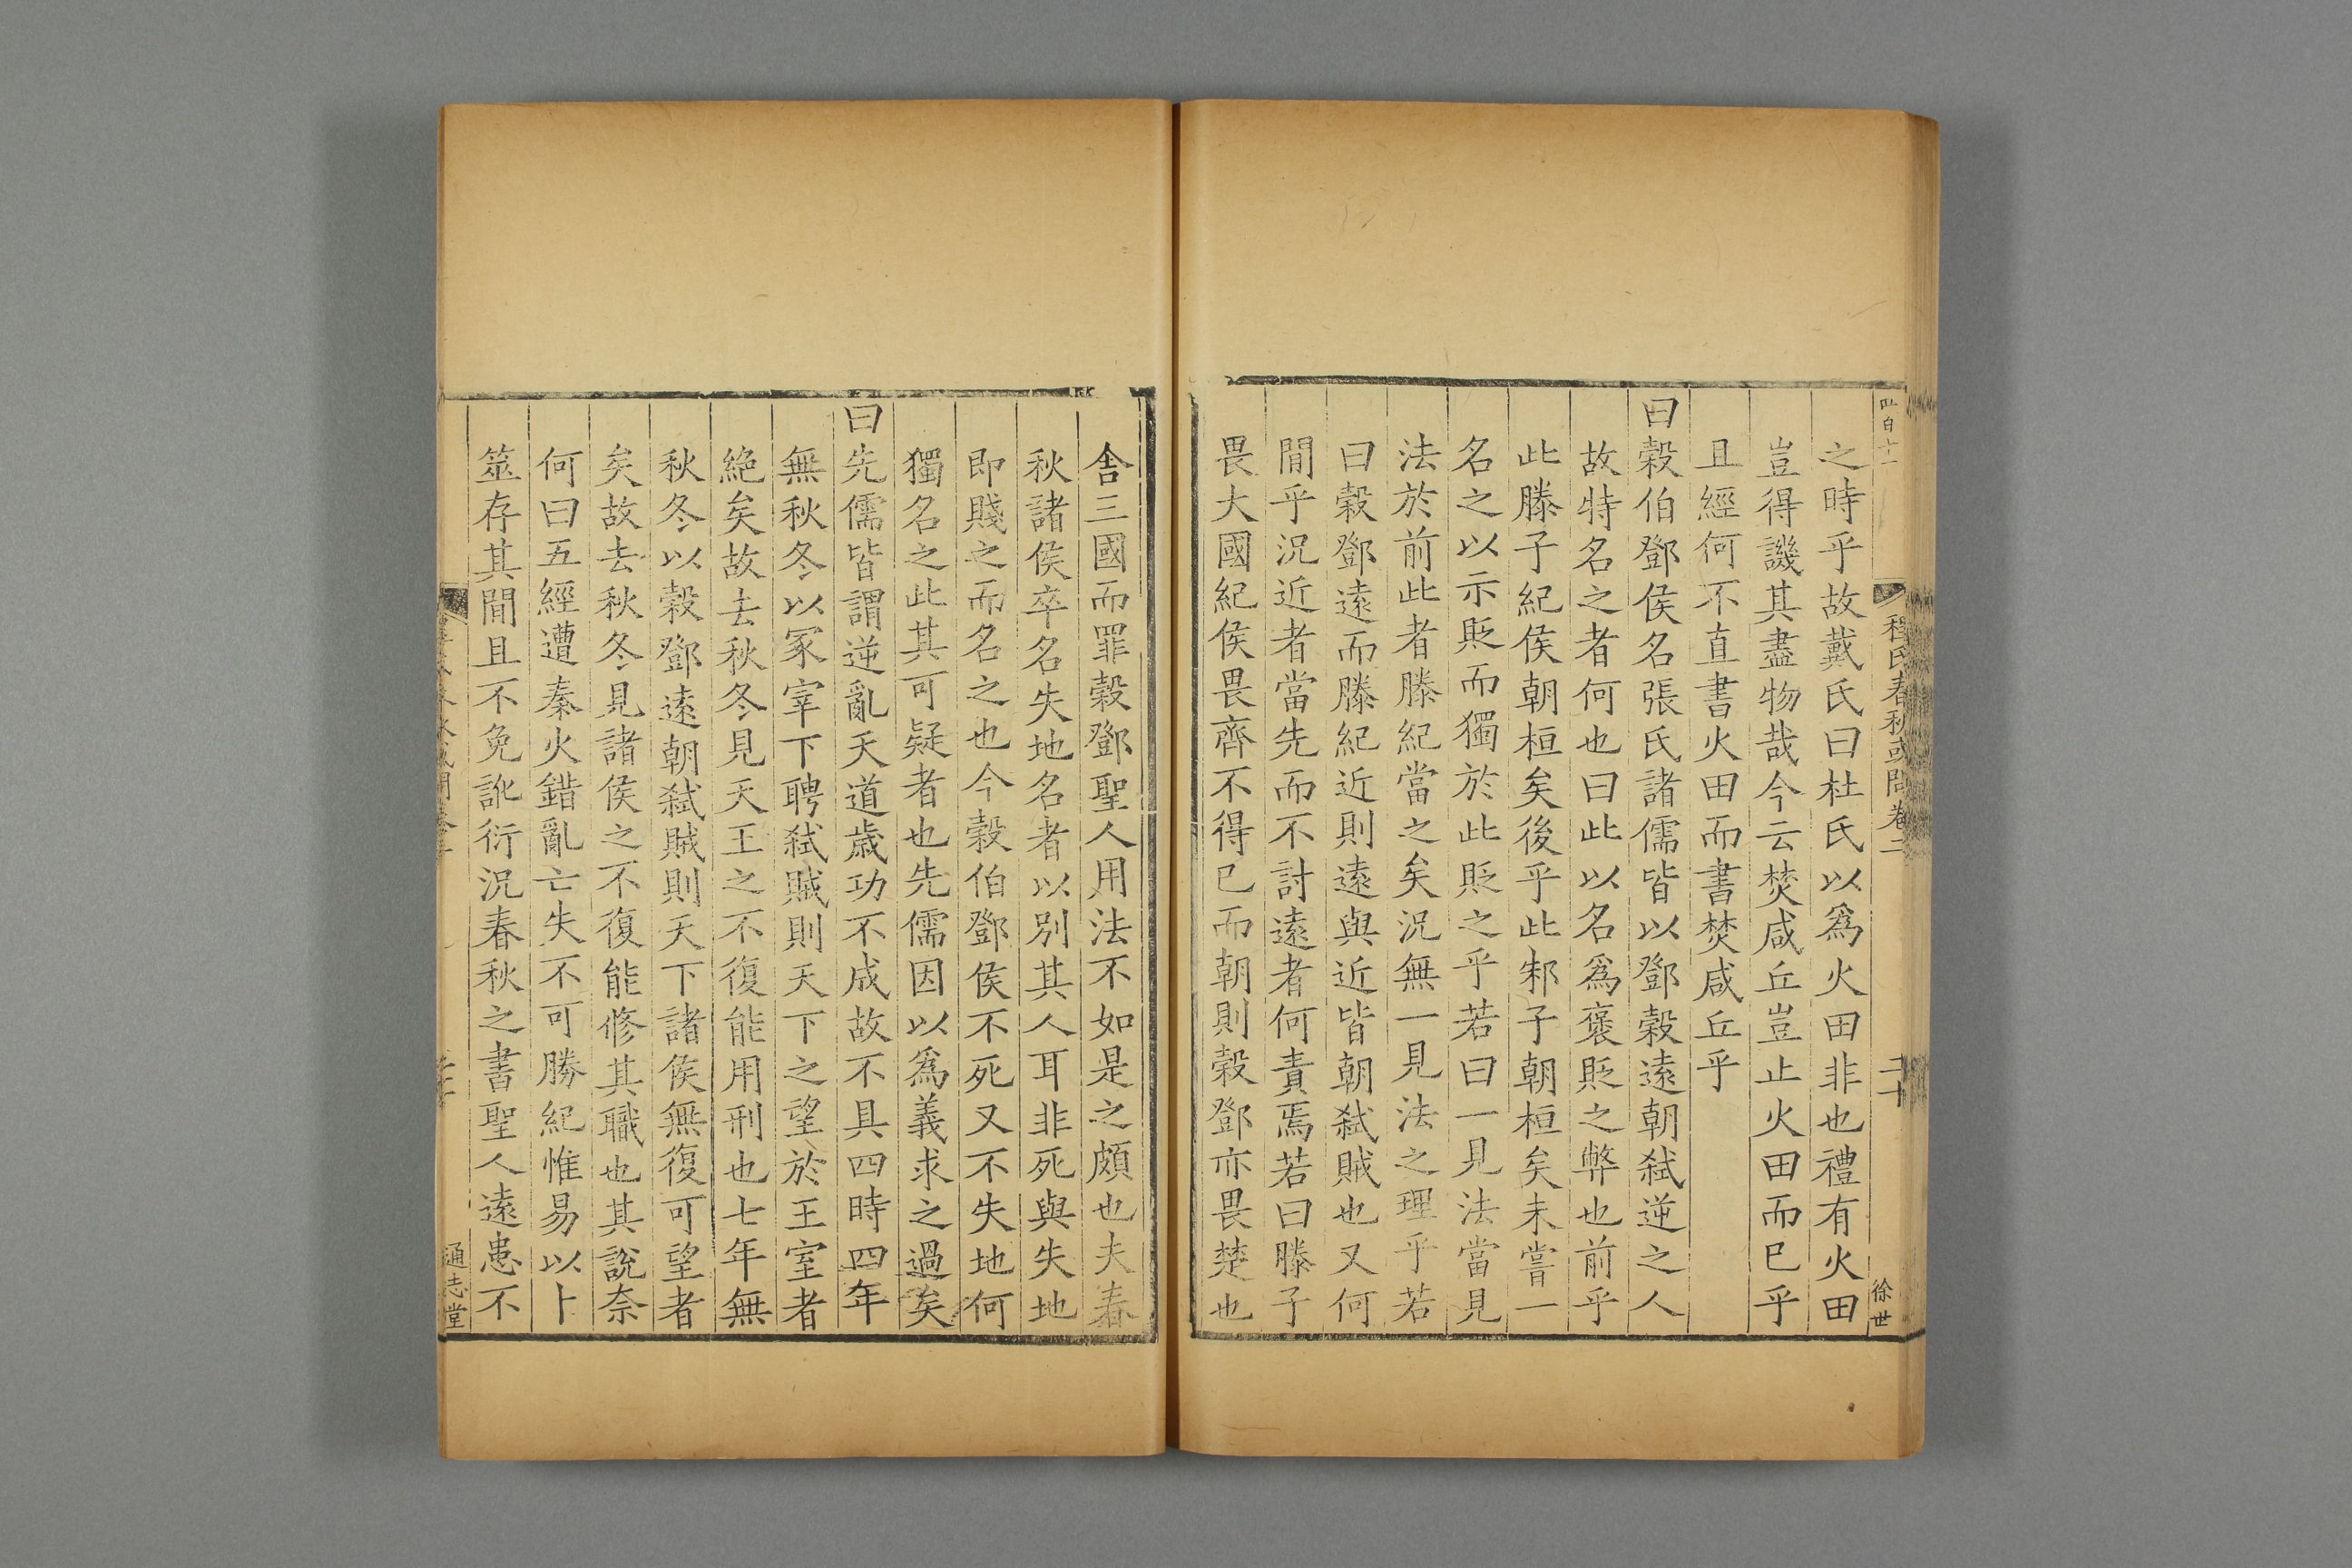 程氏春秋或問卷二
二十
徐世
之時乎故戴氏曰杜氏以爲火田非也禮有火田
豈得譏其盡物哉今云焚咸丘豈止火田而巳乎
且經何不直書火田而書焚咸丘乎
曰榖伯鄧侯名張氏諸儒皆以鄧榖遠朝弑逆之人
故特名之者何也曰此以名爲褒貶之弊也前乎
此滕子紀侯朝桓矣後乎此邾子朝桓矣未嘗一
名之以示貶而獨於此貶之乎若曰一見法當見
法於前此者滕紀當之矣況無一見法之理乎若
曰榖鄧遠而滕紀近則遠與近皆朝弑賊也又何
間乎況近者當先而不討遠者何責焉若曰滕子
畏大國紀侯畏齊不得巳而朝則榖鄧亦畏楚也
舍三國而罪榖鄧聖人用法不如是之頗也夫春
秋諸侯卒名失地名者以別其人耳非死與失地
即賤之而名之也今榖伯鄧侯不死又不失地何
獨名之此其可疑者也先儒因以爲義求之過矣
曰先儒皆謂逆亂天道歳功不成故不具四時四年
無秋冬以冢宰下聘弑賊則天下之望於王室者
絶矣故去秋冬見天王之不復能用刑也七年無
秋冬以榖鄧遠朝弑賊則天下諸侯無復可望者
矣故去秋冬見諸侯之不復能修其職也其說奈
何曰五經遭秦火錯亂亡失不可勝紀惟易以卜
筮存其間且不免訛衍況春秋之書聖人遠患不
通志堂